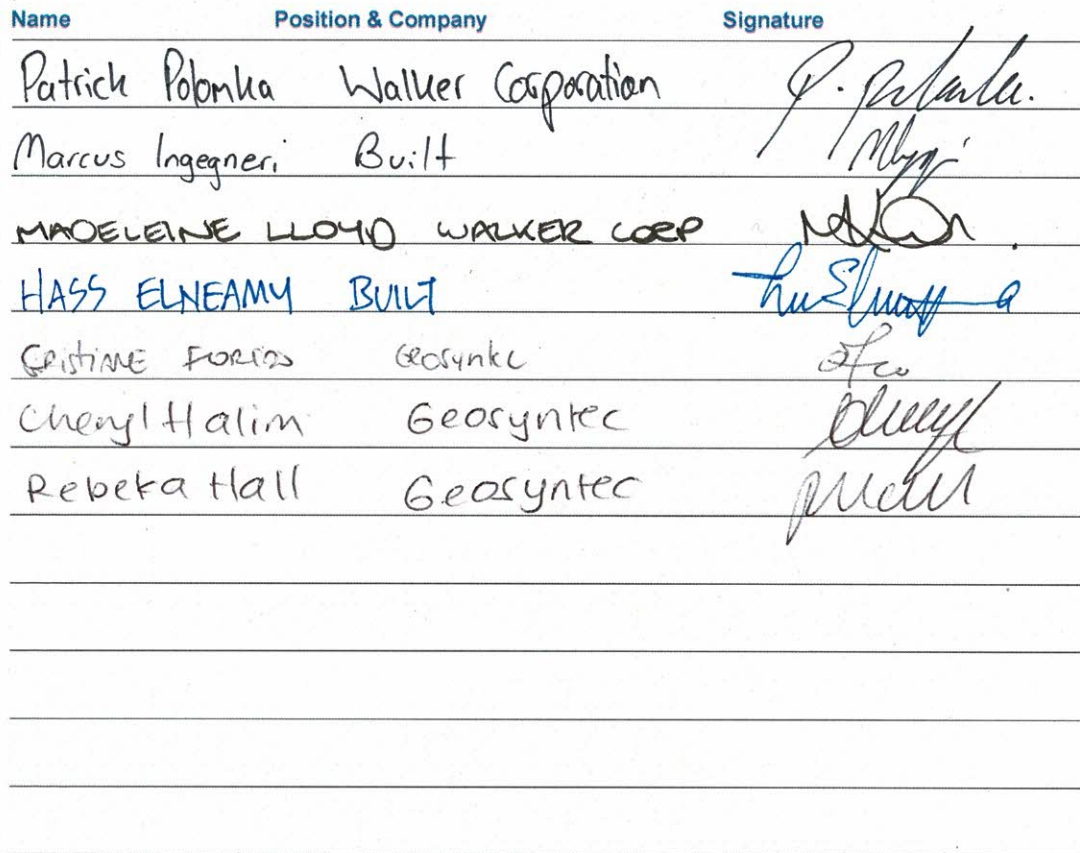 Name Position & Company Signature
Patrick Polomka Walker Corporation P. Polomka.
Marcus Ingegneri Built
MADELEINE LLOYD WALKER CORP
HASS ELNEAMY BUILT
Geosyntec
Cheryl Halim Geosyntec Cheryl
Rebeka Hall Geosyntec